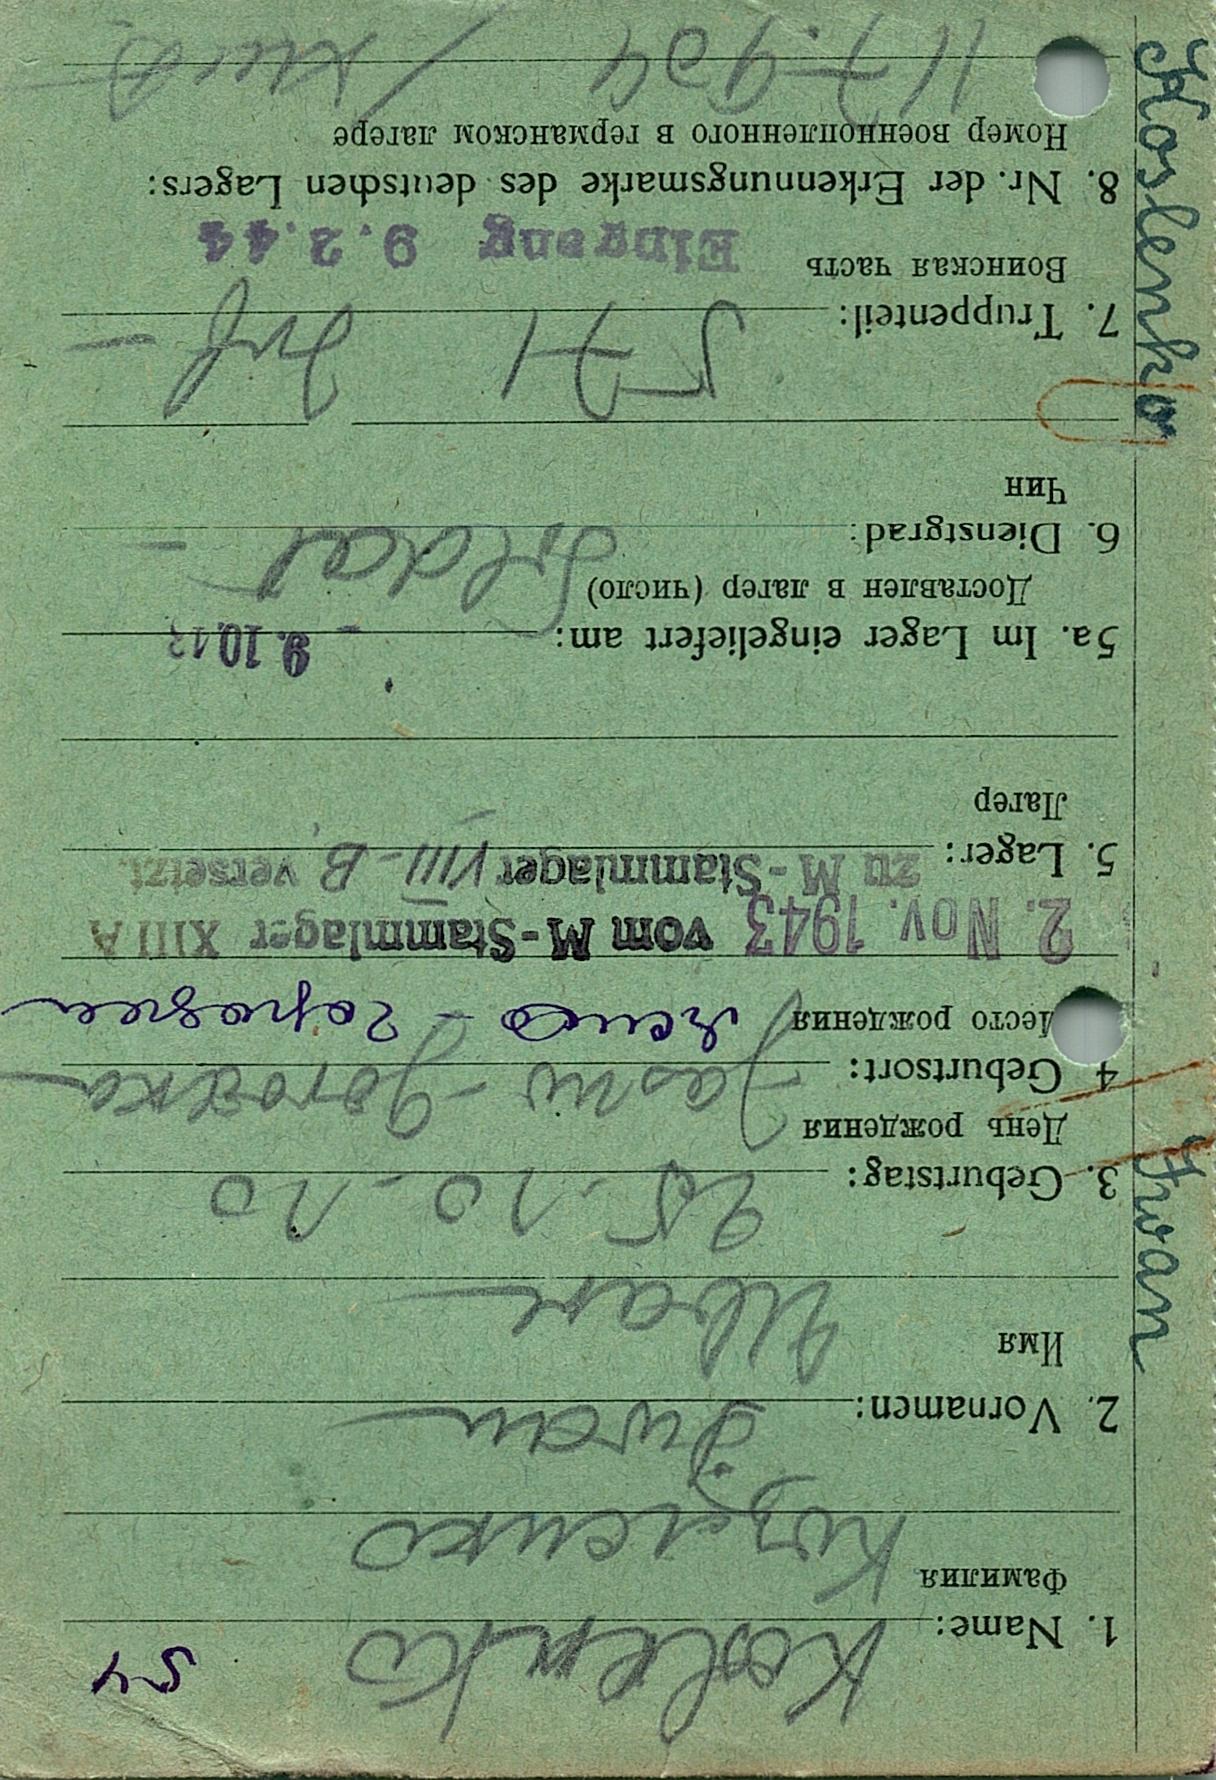 Koslenko Iwan
54
1. Name: Koslenko
Фамилия
Козленко
2. Vornamen: Iwan
Имя
Иван
3. Geburtstag: 25.10.10
День рождения
4 Geburtsort: Jasnu-Goroska
Место рождения
2. Nov. 1943 vom M-Stammlager XIII A
5. Lager: zu M-Stammlager VIII-B versetzt.
Лагер
5a. Im Lager eingeliefert am: 9.10.43
Доставлен в лагер (число)
6. Dienstgrad: Soldat
Чин
7. Truppenteil: 571 Inf-
Воинская часть
Eingang 9.2.44
8. Nr. der Erkennungsmarke des deutschen Lagers:
Номер военнопленного в германском лагере
117.904 /